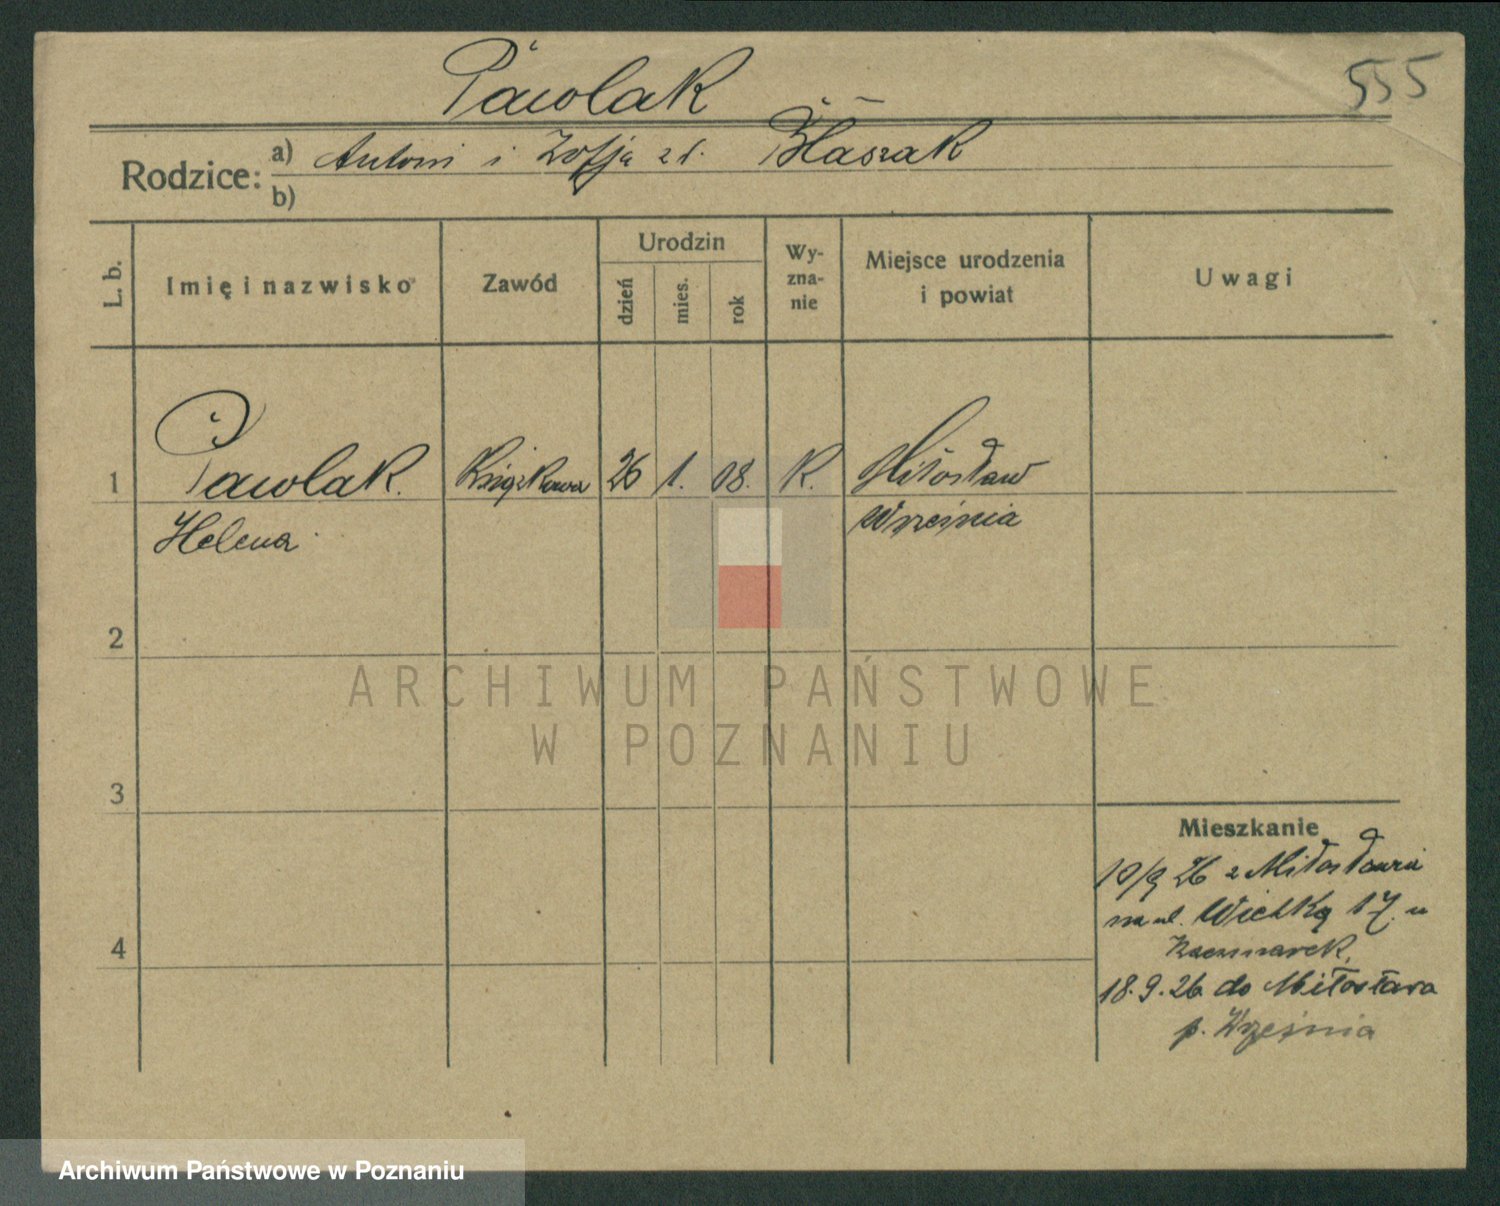 Pawlak
555
Rodzice: a) Antoni i Zofja z d. Błaszak
b)
L. b.
Imię i nazwisko
Zawód
Urodzin
dzień
mies.
rok
Wy-
zna-
nie
Miejsce urodzenia
i powiat
Uwagi
1 Pawlak. 26 1. 08. K. Miłosław
Helena Września
2
3
4
Mieszkanie
10/9 26 z Miłosławia
na ul. Wielką 17. u
Kaczmarek.
18.9.26 do Miłosława
p. Września
ARCHIWUM PAŃSTWOWE
W POZNANIU
Archiwum Państwowe w Poznaniu